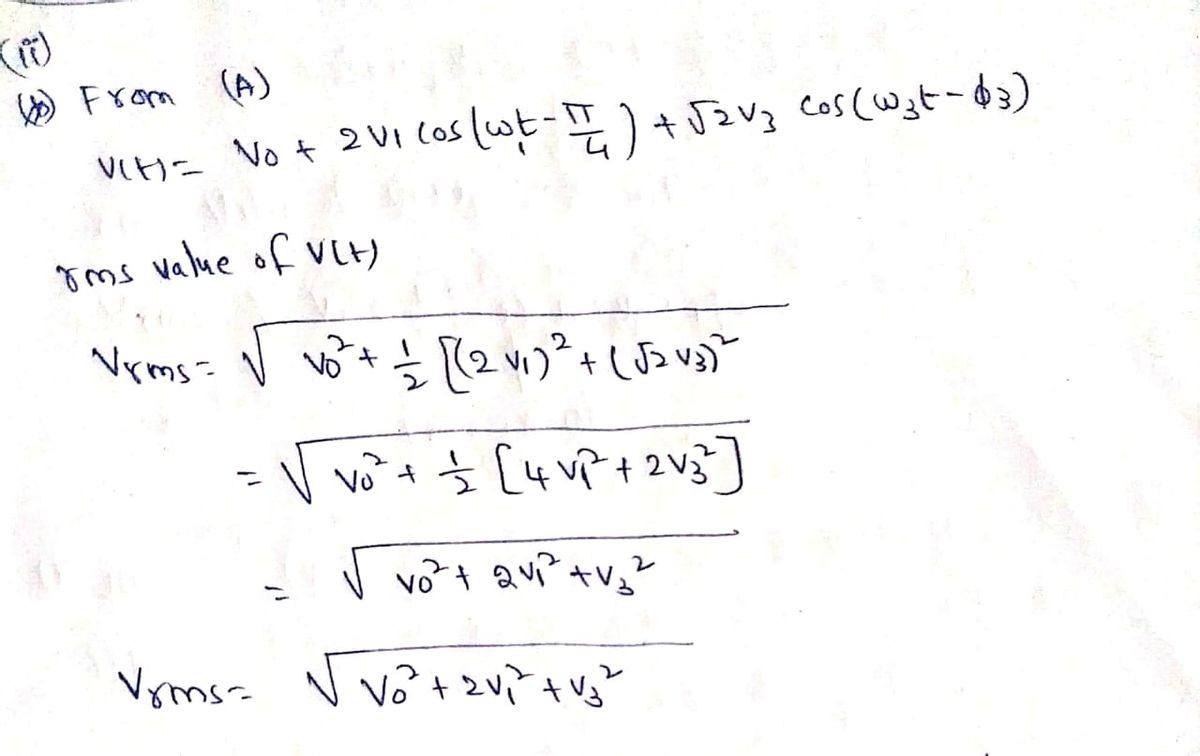 (ii)
(b) From (A)
V(t) = V₀ + 2V₁ cos(ω₁t - π/4) + √2V₃ cos(ω₃t - ϕ₃)
rms value of V(t)
Vrms = √(V₀² + 1/2 [(2V₁)² + (√2V₃)²
= √(V₀² + 1/2 [4V₁² + 2V₃²]
= √(V₀² + 2V₁² + V₃²
Vrms = √(V₀² + 2V₁² + V₃²